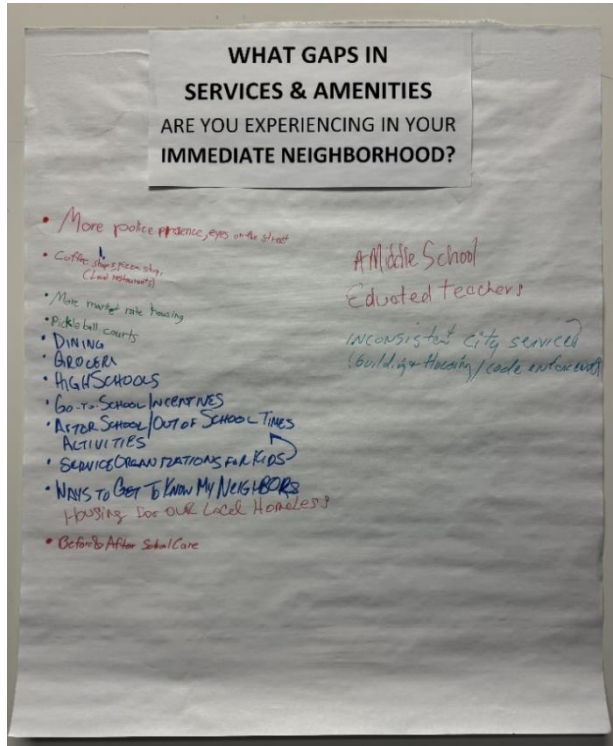 WHAT GAPS IN
SERVICES & AMENITIES
ARE YOU EXPERIENCING IN YOUR
IMMEDIATE NEIGHBORHOOD?
• More police presence, eyes on the street
• Coffee shops,
(Local restaurants)
• More market rate housing
• Pickleball courts
• DINING
• GROCERY
• HIGH SCHOOLS
• GO-TO-SCHOOL INCENTIVES
• AFTER SCHOOL/OUT OF SCHOOL TIMES
ACTIVITIES
• SERVICE ORGANIZATIONS FOR KIDS
• WAYS TO GET TO KNOW MY NEIGHBORS
Housing for our Local Homeless
• Before & After School Care
A Middle School
Educated teachers
inconsistent city services
(Building + Housing / code enforcement)